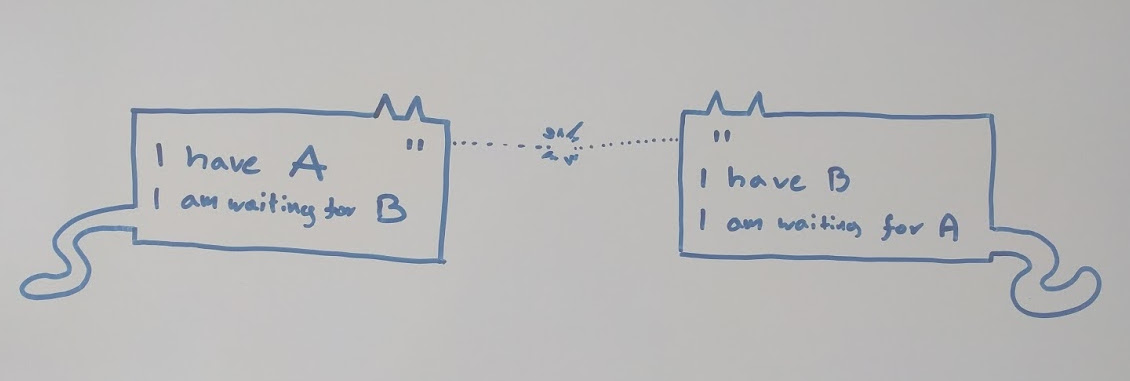 I have A
I am waiting for B
I have B
I am waiting for A